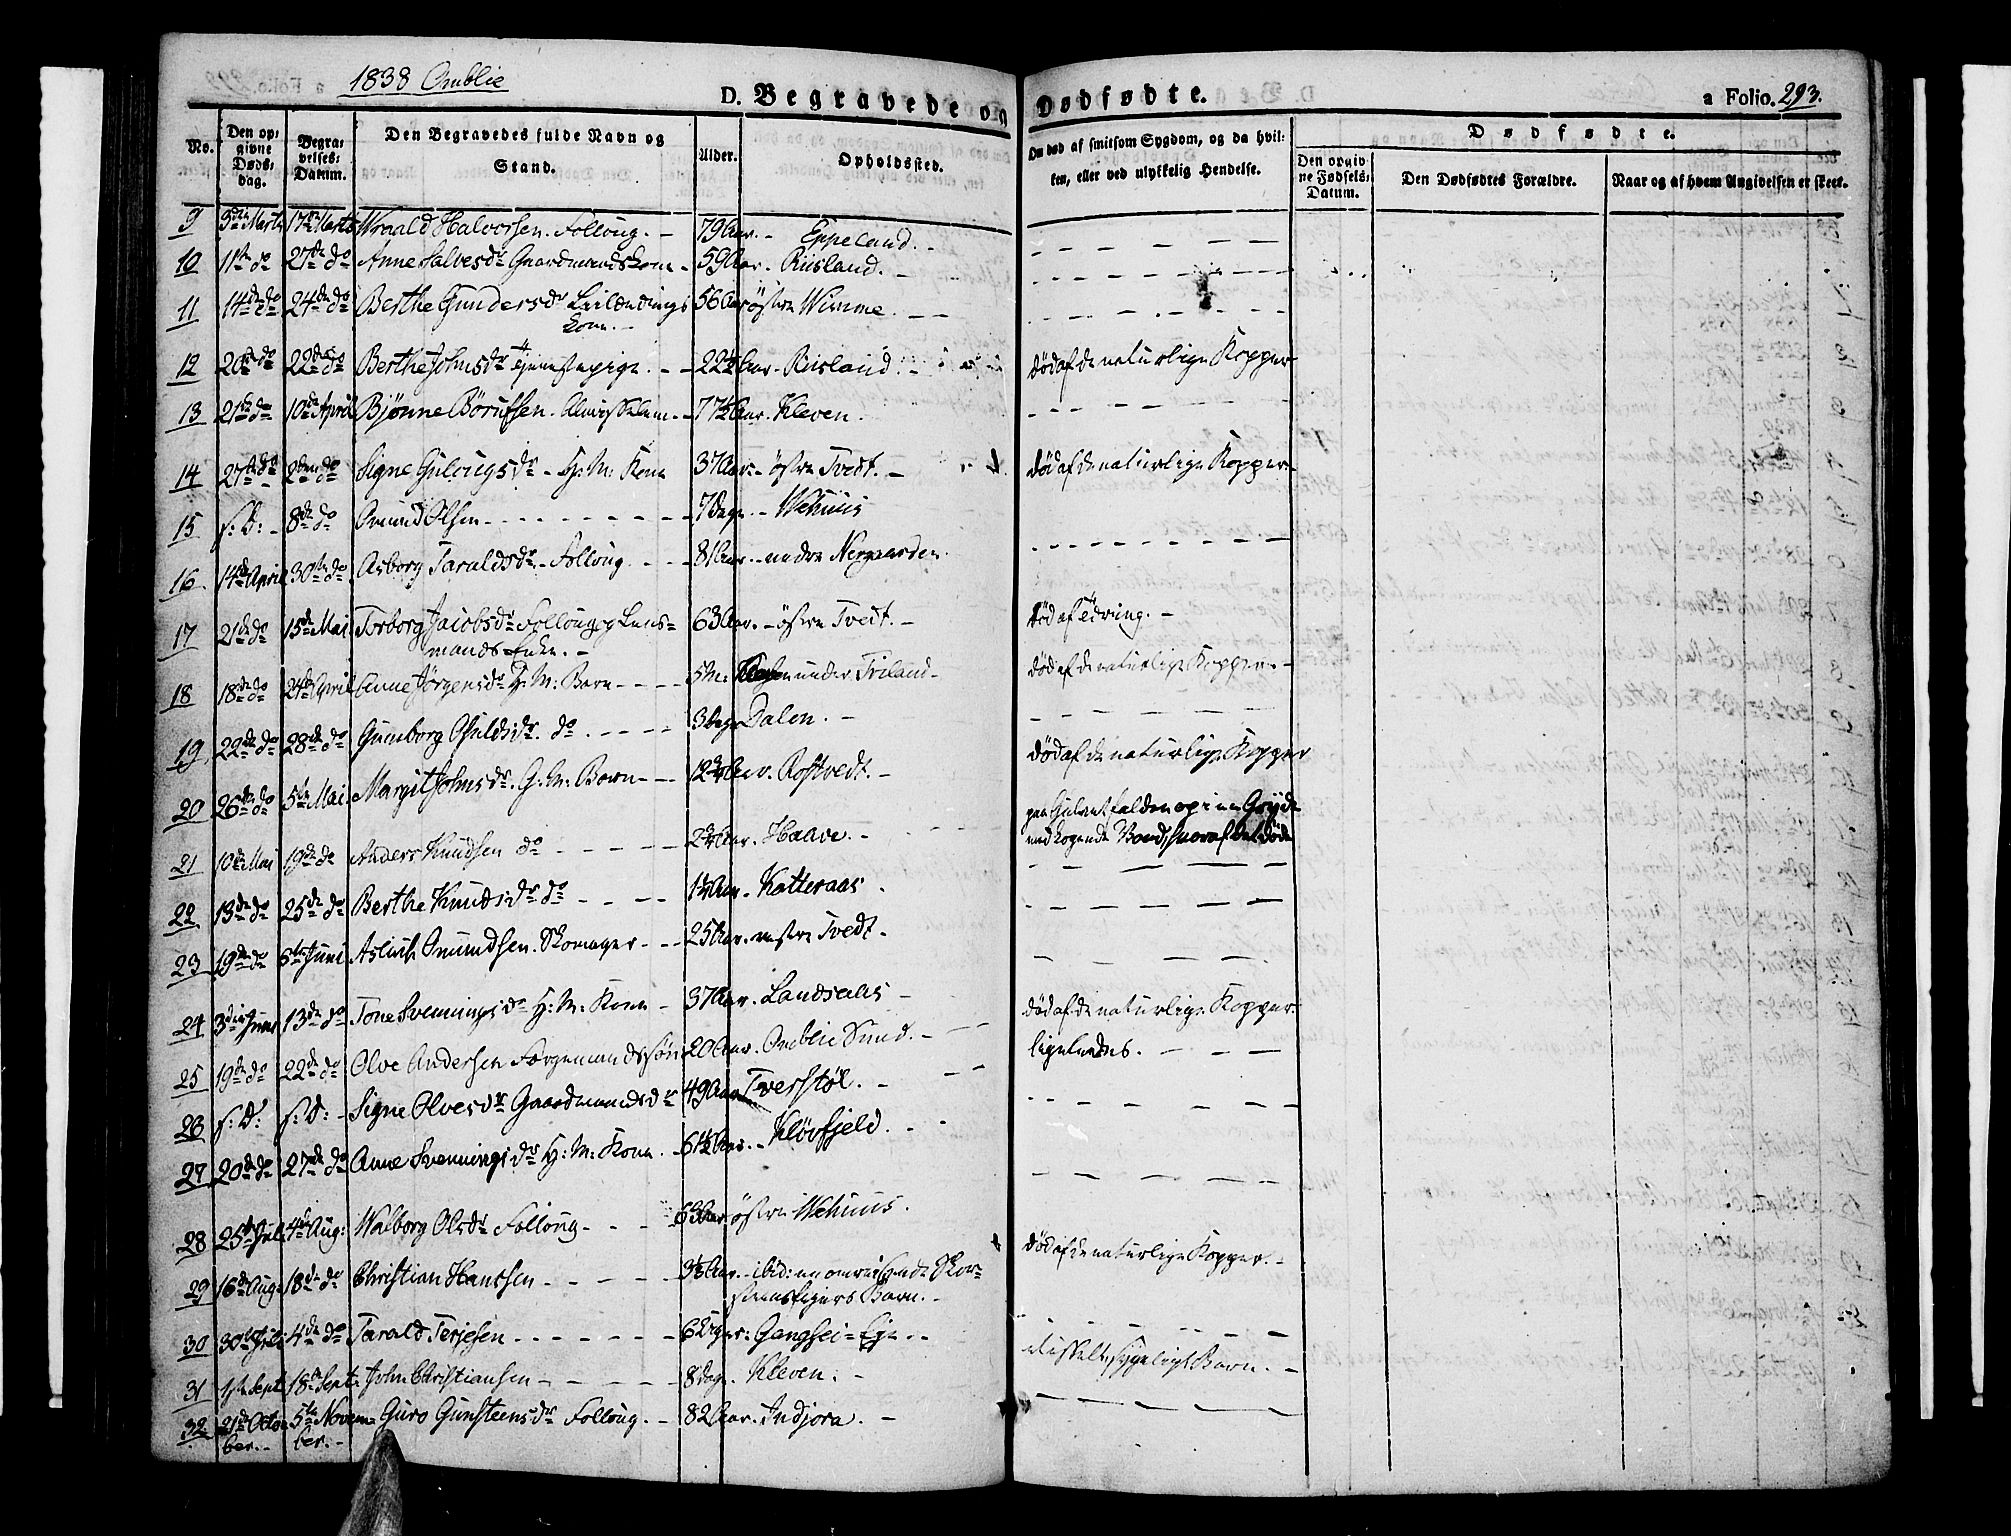 1838 Omblie
D. Begravede og Dødfødte.
a Folio. 293.
No.
Den op=
givne
Døds=
dag.
Begra=
velses=
Datum.
Den Begravedes fulde Navn og
Stand.
Alder.
Opholdssted.
Om død af smitsom Sygdom, og da hvil=
ken, eller ved ulykkelig Hendelse.
Dødfødte.
Den opgiv=
ne Fødsels=
Datum.
Den Dødfødtes Forældre.
Naar og af hvem Angivelsen er skeet.
9 3die Marts 17de Marts Wraald Halvorsen. Folloug. - 79 Aar. - Eppeland. -
10 11te do 27de do Anne Salvesdr Gaardmandskone - 59 Aar. Riisland. -
11 14de do 24de do Berthe Gundersdr Leilændings 56 Aar østre Wimme. - -
Kone. -
12 20de do 22de do Berthe Johnsdr Tjenestepige. - - 22½ Aar. Riisland. død af de naturlige Kopper
13 21de do 10de April Bjønne Børufsen. Almisselem. - 77½ Aar. Kleven.
14 27de do 2den do Signe Gulougsdr - H: M: Kone 37 Aar. - østre Tvedt. - død af de naturlige Kopper -
15 s: D: - 8de do Omund Olsen - - - 7 dage. - Wehuus
16 14de April 30te do Asborg Taraldsdr - Folloug. - - 81 Aar. - nedre Nergaarden.
17 21de do 15de Mai Torborg Jacobsdr Folloug og Lens= 63 Aar. - østre Tvedt. - død af Tæring. -
mands Enke. -
18 18de do 24de April Anne Jørgensdr H: M: Barn - - - 5 M: under Friland - død af de naturlige Kopper -
19 22de do 28de do Gunborg Osuldsdr. do - - - 3 dage Dalen. -
20 26de do 5te Mai. Margit Johnsdr. G: M: Barn - - - 12¾ Aar. Rostvedt. - død af de naturlige Kopper
21 10de Mai 19de do Anders Knudsen do - - - 2¾ Aar. Haave. - paa Gulvet falden op i en Gryde
med kogende Vand, hvoraf det døde
22 13de do 25de do Berthe Knudsdr do - - - 1½ Aar. Katteraas.
23 19de do 8de Juni Aslak Omundsen. Skomager - - - 25 Aar. vestre Tvedt. -
24 3die Juni 13de do Tone Svenningsdr H: M: Kone - 37 Aar. Landsælis - død af de naturlige Kopper.
25 19de do 22de do Olve Andersen Færgemandssøn 20 Aar. Omblie Sund. - ligeledes. - - -
26 s: D: s: D: - Signe Olvesdr Gaardmandsdr 49 Aar Tverstøl. -
27 20de do 27de do Anne Svenningsdr H: M: Kone. - 61½ Aar. - Kløvfjeld. -
28 25de Juli 4de Aug: Walborg Olsdr Folloug - - - 63 Aar. østre Wehuus.
29 16de Aug: 18de do Christian Hanssen - - - 3½ Aar. - ibid: en omreisende Skor= død af de naturlige Kopper. -
steensfeiers Barn. -
30 30te Juli 4de do Tarald Terjesen - - - 6 Uger: Gangsei = Eie. -
31 1ste Sept. 18de Sept: John Christiansen - - - 8 dage. Kleven: - sygeligt Barn. -
32 21de Octo= 5te Novem= Guro Gunsteensdr Folloug. - 82 Aar. Indjora. -
ber. - ber. -